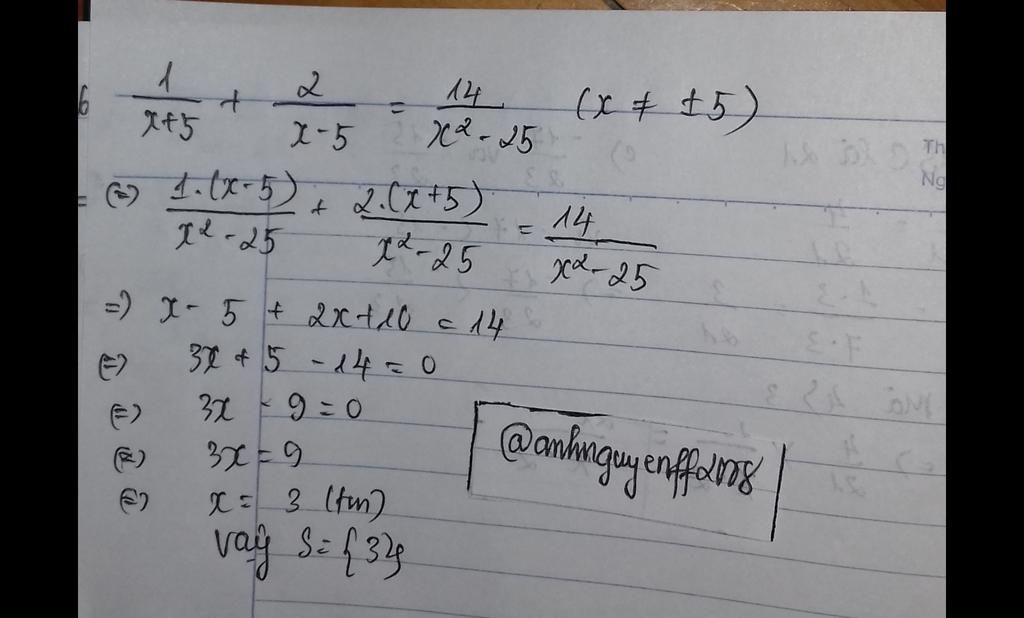 6 1/(x+5) + 2/(x-5) = 14/(x²-25) (x ≠ ±5)
= (=) 1.(x-5)/(x²-25) + 2.(x+5)/(x²-25) = 14/(x²-25)
=) x - 5 + 2x+10 = 14
(=) 3x + 5 - 14 = 0
(=) 3x - 9 = 0
(=) 3x = 9
(=) x = 3 (tm)
vậy S={3}
@anhnguyenff2008
Th
Ng